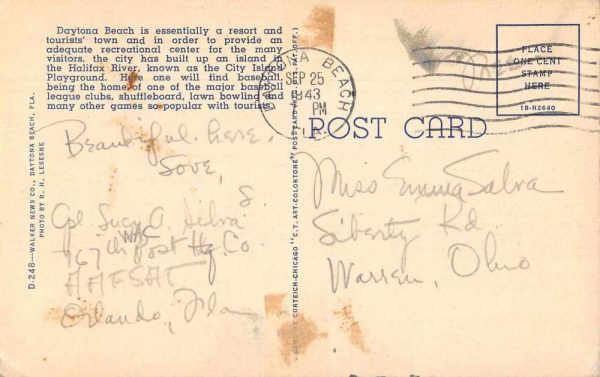 Daytona Beach is essentially a resort and
tourists' town and in order to provide an
adequate recreational center for the many
visitors, the city has built up an island in
the Halifax River, known as the City Island
Playground. Here one will find baseball,
being the home of one of the major baseball
league clubs, shuffleboard, lawn bowling and
many other games so popular with tourists.
D-248—WALKER NEWS CO., DAYTONA BEACH, FLA.
PHOTO BY R. H. LESESNE
Beautiful here.
Love,
Cpl Lucy O. Silva
WAC
767th Post Hq. Co.
AAFSAT
Orlando, Fla
CURTEICH-CHICAGO "C.T. ART-COLORTONE" POST CARD
DAYTONA BEACH
SEP 25
1943
PM
Free
PLACE
ONE CENT
STAMP
HERE
1B-H2640
POST CARD
Miss Emma Salva
Liberty Rd.
Warren, Ohio